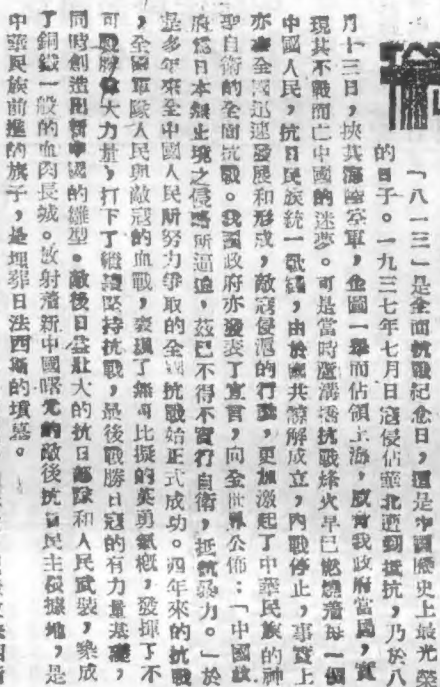 論
「八一三」是全面抗戰紀念日，還是中國歷史上最光榮
的日子。一九三七年七月日寇侵佔華北遭到抵抗，乃於八
月十三日，挾其海陸空軍，企圖一舉而佔領上海，威脅我政府當局，實
現其不戰而亡中國的迷夢。可是當時蘆溝橋抗戰烽火早已燃燒着每一個
中國人民，抗日民族統一戰綫，由於國共諒解成立，內戰停止，事實上
亦在全國迅速發展和形成，敵寇侵滬的行動，更加激起了中華民族的神
聖自衛的全面抗戰。我國政府亦發表了宣言，向全世界公佈：「中國政
府爲日本無止境之侵略所逼迫，茲已不得不實行自衛，抵抗暴力。」於
是多年來全中國人民所努力爭取的全國抗戰始正式成功。四年來的抗戰
，全國軍隊人民與敵寇的血戰，表現了無可比擬的英勇氣概，發揮了不
可戰勝偉大力量，打下了繼續堅持抗戰，最後戰勝日寇的有力量基礎，
同時創造出新中國的雛型。敵後日益壯大的抗日部隊和人民武裝，築成
了銅鐵一般的血肉長城。放射着新中國曙光的敵後抗日民主根據地，是
中華民族前進的旗子，是埋葬日法西斯的墳墓。